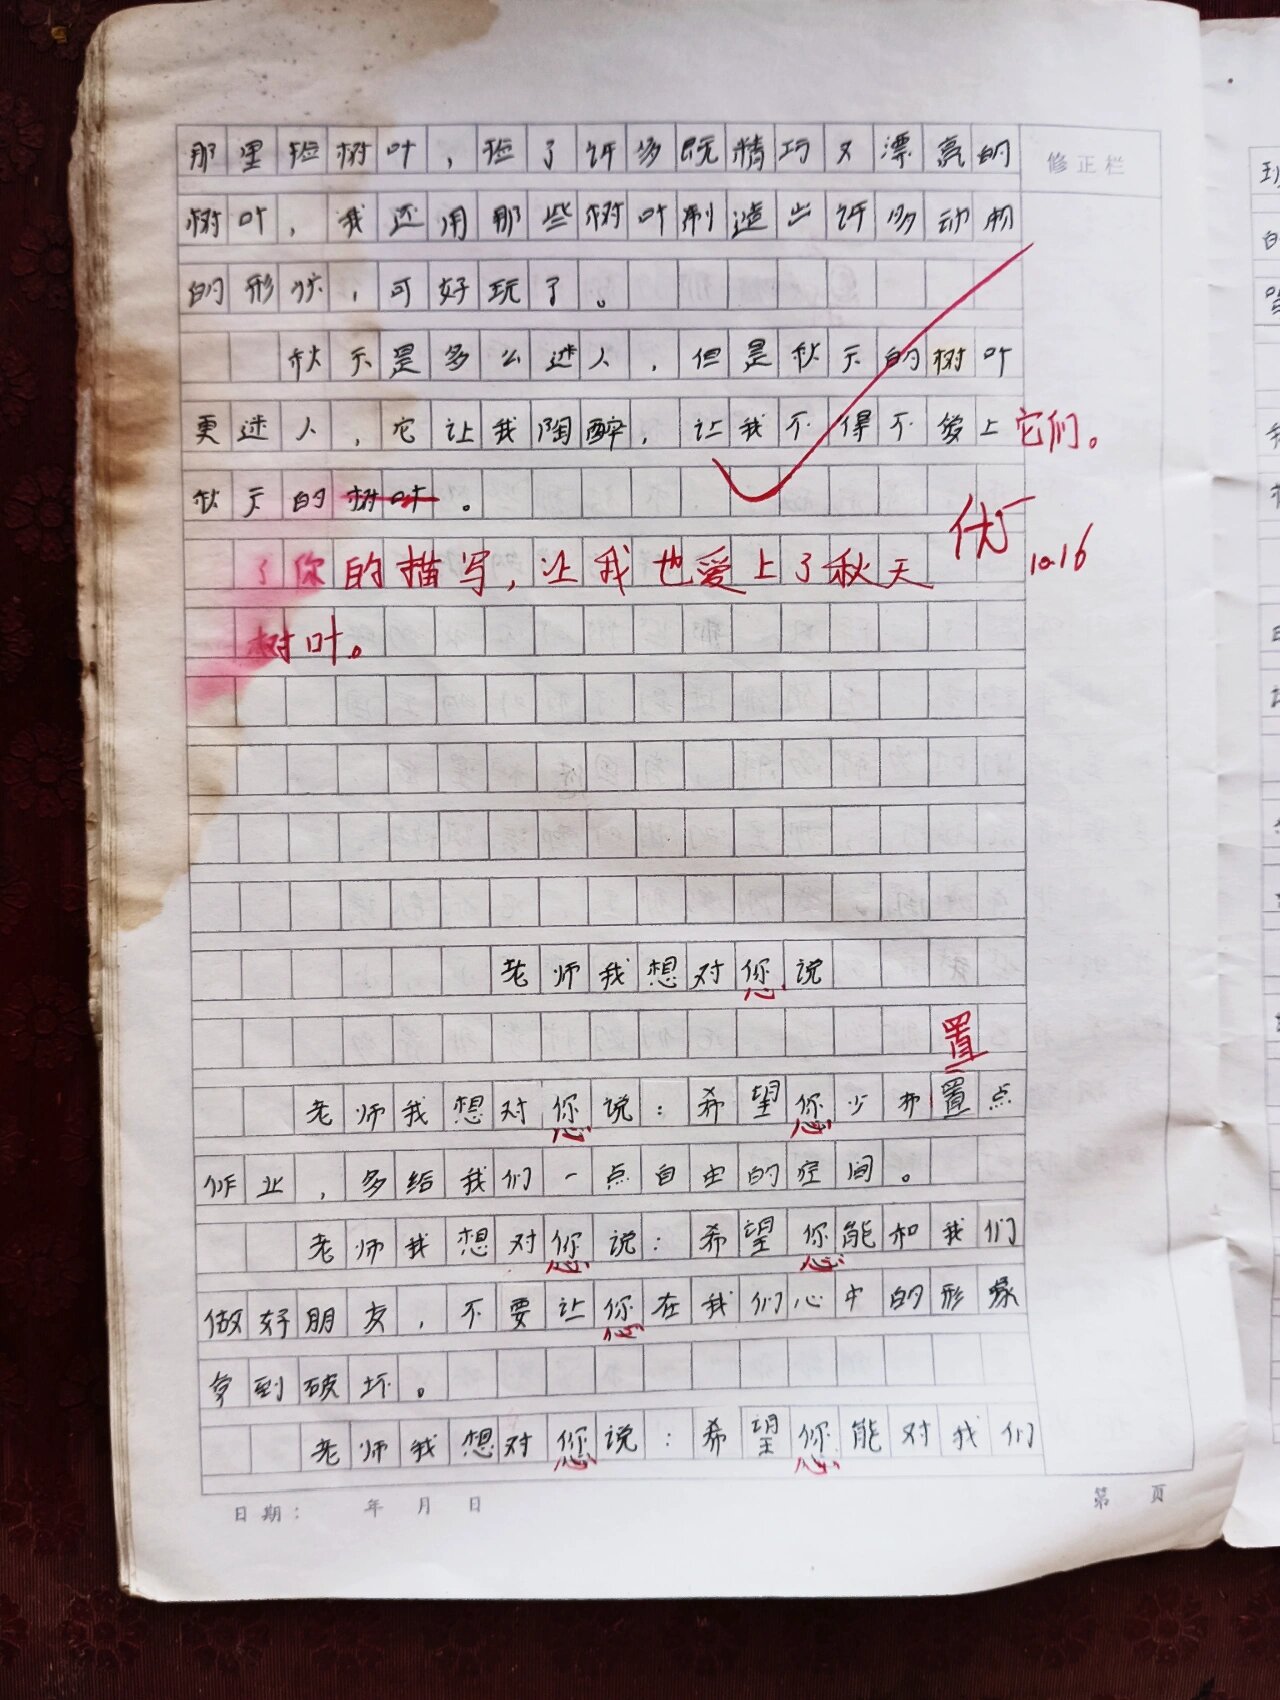 那里捡树叶，捡了许多既精巧又漂亮的
修正栏
树叶，我还用那些树叶制造出许多动物
的形状，可好玩了。
秋天是多么迷人，但是秋天的树叶
更迷人，它让我陶醉，让我不得不爱上它们。
秋天的树叶。
优
10.16
了你的描写，让我也爱上了秋天
树叶。
老师我想对您说
置
老师我想对您说：希望您少布置点
作业，多给我们一点自由的空间。
老师我想对您说：希望您能和我们
做好朋友，不要让您在我们心中的形象
受到破坏。
老师我想对您说：希望您能对我们
日期： 年 月 日
第 页